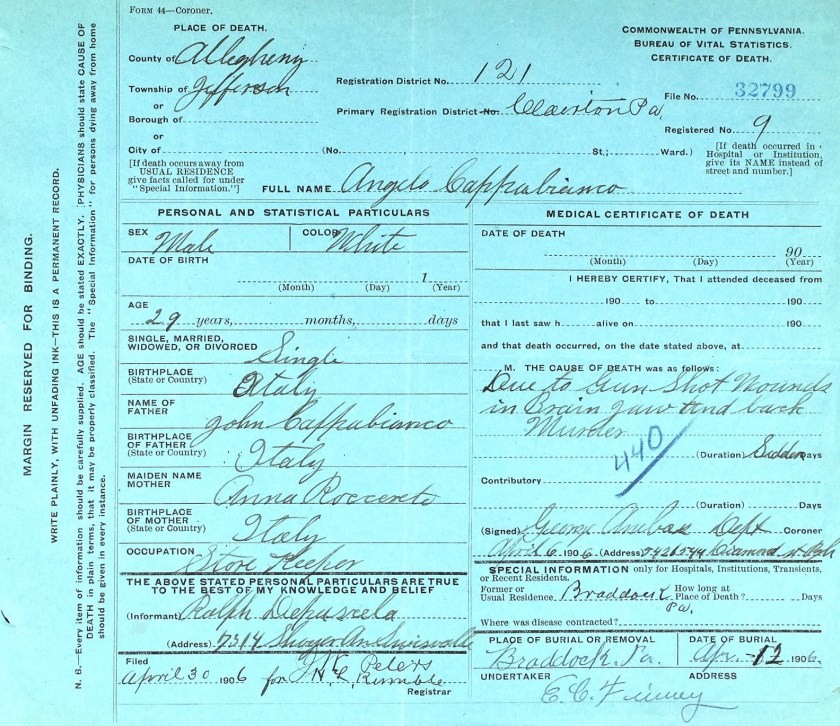 FORM 44—Coroner.
PLACE OF DEATH.
County of Allegheny
Township of Jefferson
or
Borough of
or
City of (No. St.; Ward.)
[If death occurs away from
USUAL RESIDENCE
give facts called for under
"Special Information."]
COMMONWEALTH OF PENNSYLVANIA.
BUREAU OF VITAL STATISTICS.
CERTIFICATE OF DEATH.
Registration District No. 121
File No. 32799
Primary Registration District No. Clairton Pa.
Registered No. 9
[If death occurred in
Hospital or Institution,
give its NAME instead of
street and number.]
FULL NAME Angelo Cappabianco
PERSONAL AND STATISTICAL PARTICULARS
SEX Male COLOR White
DATE OF BIRTH
1
(Month) (Day) (Year)
AGE
29 years, months, days
SINGLE, MARRIED,
WIDOWED, OR DIVORCED Single
BIRTHPLACE
(State or Country) Italy
NAME OF
FATHER John Cappabianco
BIRTHPLACE
OF FATHER
(State or Country) Italy
MAIDEN NAME
MOTHER Anna
BIRTHPLACE
OF MOTHER
(State or Country) Italy
OCCUPATION Store Keeper
THE ABOVE STATED PERSONAL PARTICULARS ARE TRUE
TO THE BEST OF MY KNOWLEDGE AND BELIEF
(Informant) Ralph
(Address) 7314
Filed
April 30 1906 for Peters
Registrar
MEDICAL CERTIFICATE OF DEATH
DATE OF DEATH
90
(Month) (Day) (Year)
I HEREBY CERTIFY, That I attended deceased from
190 to 190
that I last saw h alive on 190
and that death occurred, on the date stated above, at
M. THE CAUSE OF DEATH was as follows:
Due to Gun Shot Wounds
in Brain Jaw and back
Murder
440
(Duration) Sudden Days
Contributory
(Duration) Days
(Signed) George Dept Coroner
April 6 1906 (Address) Diamond
SPECIAL INFORMATION only for Hospitals, Institutions, Transients,
or Recent Residents.
Former or
Usual Residence Braddock Pa.
How long at
Place of Death? Days
Where was disease contracted?
PLACE OF BURIAL OR REMOVAL
Braddock, Pa.
DATE OF BURIAL
Apr. 12 1906
UNDERTAKER ADDRESS
E. C. Finney
MARGIN RESERVED FOR BINDING.
WRITE PLAINLY, WITH UNFADING INK—THIS IS A PERMANENT RECORD.
N. B.—Every item of information should be carefully supplied. AGE should be stated EXACTLY. PHYSICIANS should state CAUSE OF
DEATH in plain terms, that it may be properly classified. The "Special Information" for persons dying away from home
should be given in every instance.